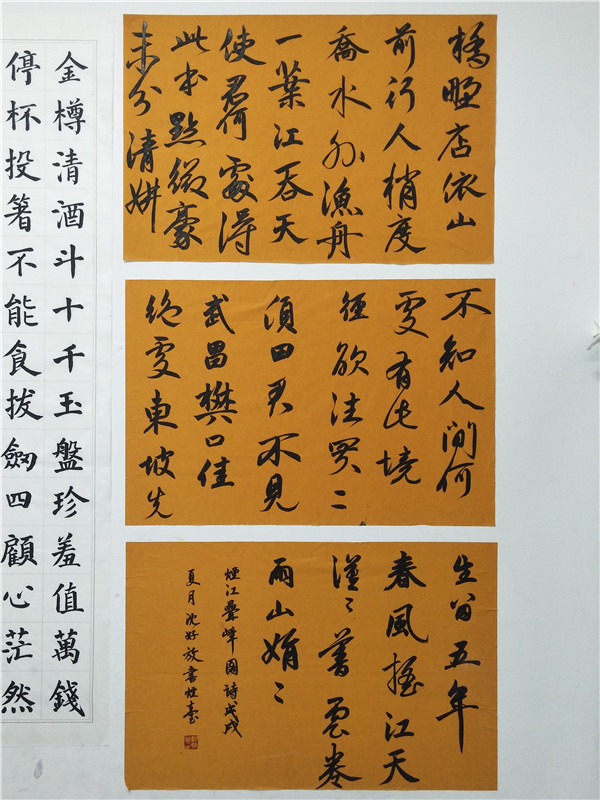 橋野店依山
前行人稍度
喬木外漁舟
一葉江吞天
使君何處得
此本點綴豪
末分清妍
不知人間何
處有此境
徑欲往買二
頃田君不見
武昌樊口佳
絕處東坡先
生留五年
春風搖江天
漠〻暮雲卷
雨山娟〻
煙江疊嶂圖詩戊戌
夏月沈好放書煙臺
金樽清酒斗十千玉盤珍羞值萬錢
停杯投箸不能食拔劍四顧心茫然